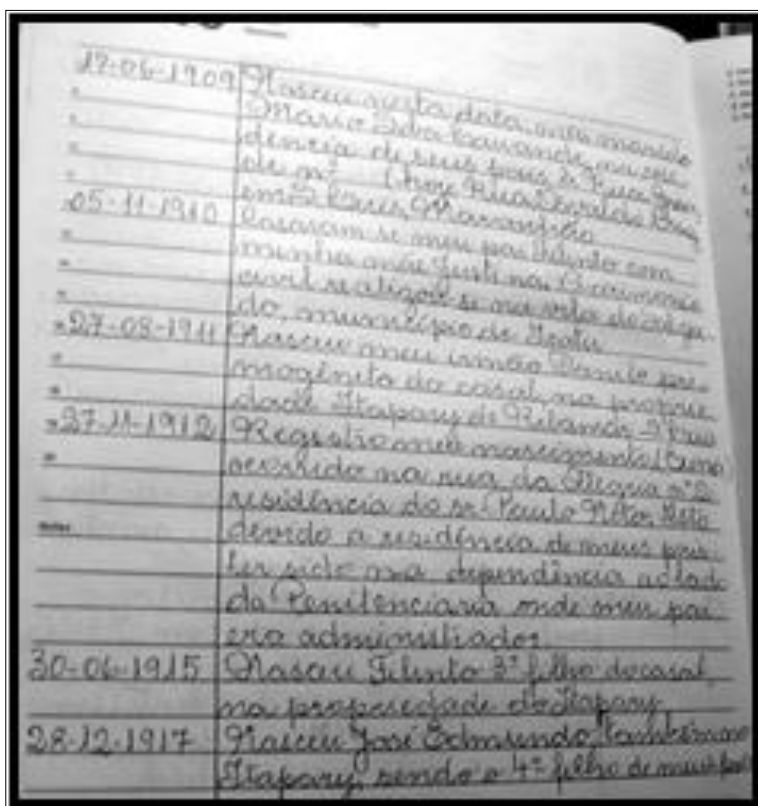 17-06-1909 Nasceu nesta data, meu marido
Mario Silva
dencia de seus pais à Rua
de nº (hoje Rua
em São Luis, Maranhão
05-11-1910 Casaram-se meu pai Filinto com
minha mãe Justina. A cerimonia
civil realizou-se na vila do
do, município de Icatu
27-08-1911 Nasceu meu irmão Danilo pri-
mogênito do casal, na proprie-
dade Itapary de Ribamar
27-11-1912 Registro meu nascimento
ocorrido na rua da nº 2
residência do sr. Paulo
devido a residência de meus pais
ter sido na dependência ao lado
da Penitenciaria onde meu pai
era administrador
30-06-1915 Nasceu Filinto 3º filho do casal,
na propriedade do Itapary
28-12-1917 Nasceu José Edmundo, também no
Itapary, sendo o 4º filho de meus pais